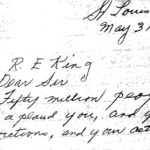 St Louis
May 31
R. E King
Dear Sir
Fifty million peop
applaud you, and y
ctions, and your act